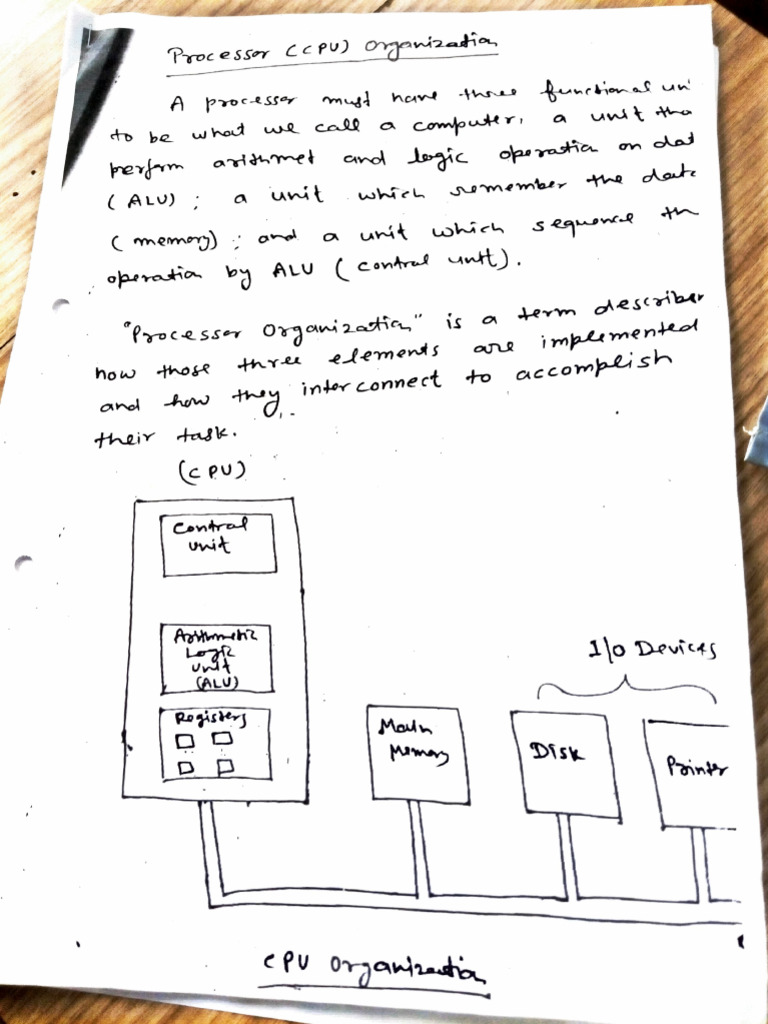 Processor (CPU) Organization
A processor must have three functional un
to be what we call a computer, a unit tha
perform arithmet and logic operation on dat
(ALU); a unit which remember the data
(memory); and a unit which sequence th
operation by ALU (control unit).
"Processor Organization" is a term describer
how those three elements are implemented
and how they interconnect to accomplish
their task.
(CPU)
Control
unit
Arithmetic
Logic
unit
(ALU)
Registers
I/O Devices
Main
Memory
Disk
Printer
CPU Organization